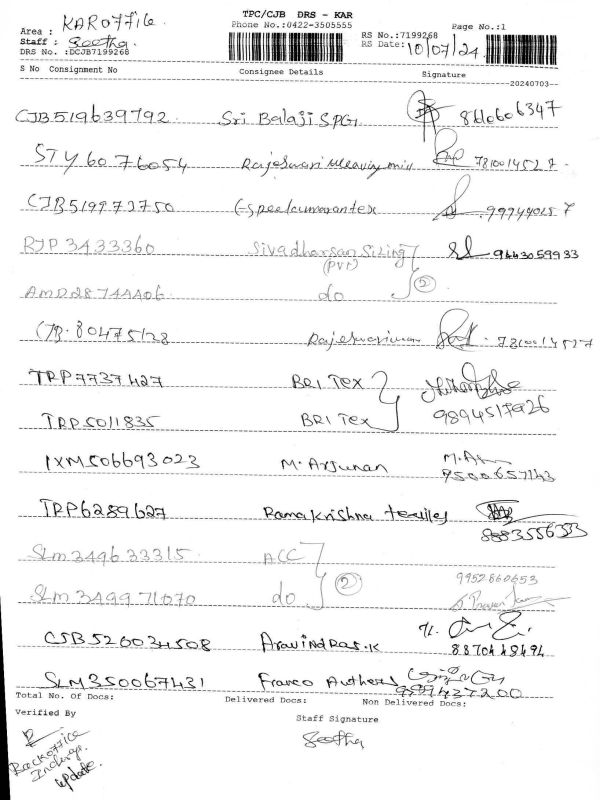 TPC/CJB DRS - KAR
Area : KAR OFFICE
Phone No.:0422-3505555
Page No.:1
Staff : Geetha
RS No.:7199268
DRS No. :DCJB7199268
RS Date: 10/07/24
S No Consignment No Consignee Details Signature
20240703
CJB519639792 Sri Balaji SPG 8610606347
STY6076054 Rajeswari Weaving mill 781001452 7
CJB519972750 
RJP3433360 Sivadharsan Sizing 9443059933
(PVT) 2
AMD28744406 do
CJB. 80475128 7810014527
TRP7737427 BRI Tex
9894517926
TRP5011835 BRI Tex
IXM506693023 M. Arjunan M. A
9500657143
TRP6289627 Ramakrishna textiles
8883556333
SLM349633315 ACC
9952860653
SLM349971070 do 2
CJB526034508 Aravind Raj.K
8870448494
SLM350067431 Franco Authers
9994437200
Total No. Of Docs: Delivered Docs: Non Delivered Docs:
Verified By Staff Signature
Geetha
Backoffice
Incharge
update.